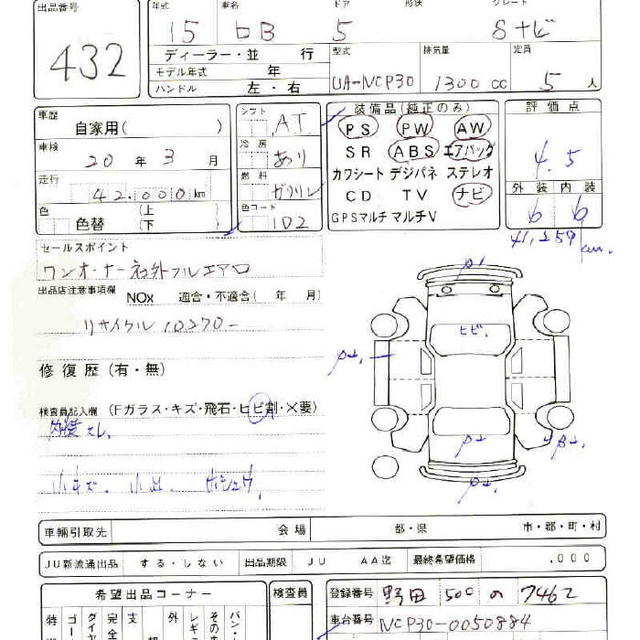 出品番号 年式 車名 ドア 形状 グレード
432 15 bB 5 Sナビ
ディーラー・並 行 型式 排気量 定員
モデル年式 年 UA-NCP30 1300 CC 5 人
ハンドル 左・右
車歴 自家用( ) シフト AT 装備品(純正のみ) 評価点
PS PW AW
車検 20 年 3 月 冷房 あり SR ABS エアバッグ 4.5
カワシート デジパネ ステレオ
走行 42,000 km 燃料 ガソリン CD TV ナビ 外装 内装
色 色替 (上 (下 ) 色コード 1D2 GPSマルチ マルチV 6 6
41,259 km
セールスポイント
ワンオーナー社外フルエアロ
出品店注意事項欄 NOx 適合・不適合( 年 月)
リサイクル 10270-
ヒビ
修復歴(有・無)
検査員記入欄 (Fガラス・キズ・飛石・ヒビ割・×要)
内装スレ
小キズ、小凹、
車輌引取先 会場 都・県 市・郡・町・村
JU新流通出品 する・しない 出品期限 JU AA迄 最終希望価格 .000
希望出品コーナー 検査員 登録番号 野田 500 の 7462
車台番号 NCP30-0050884